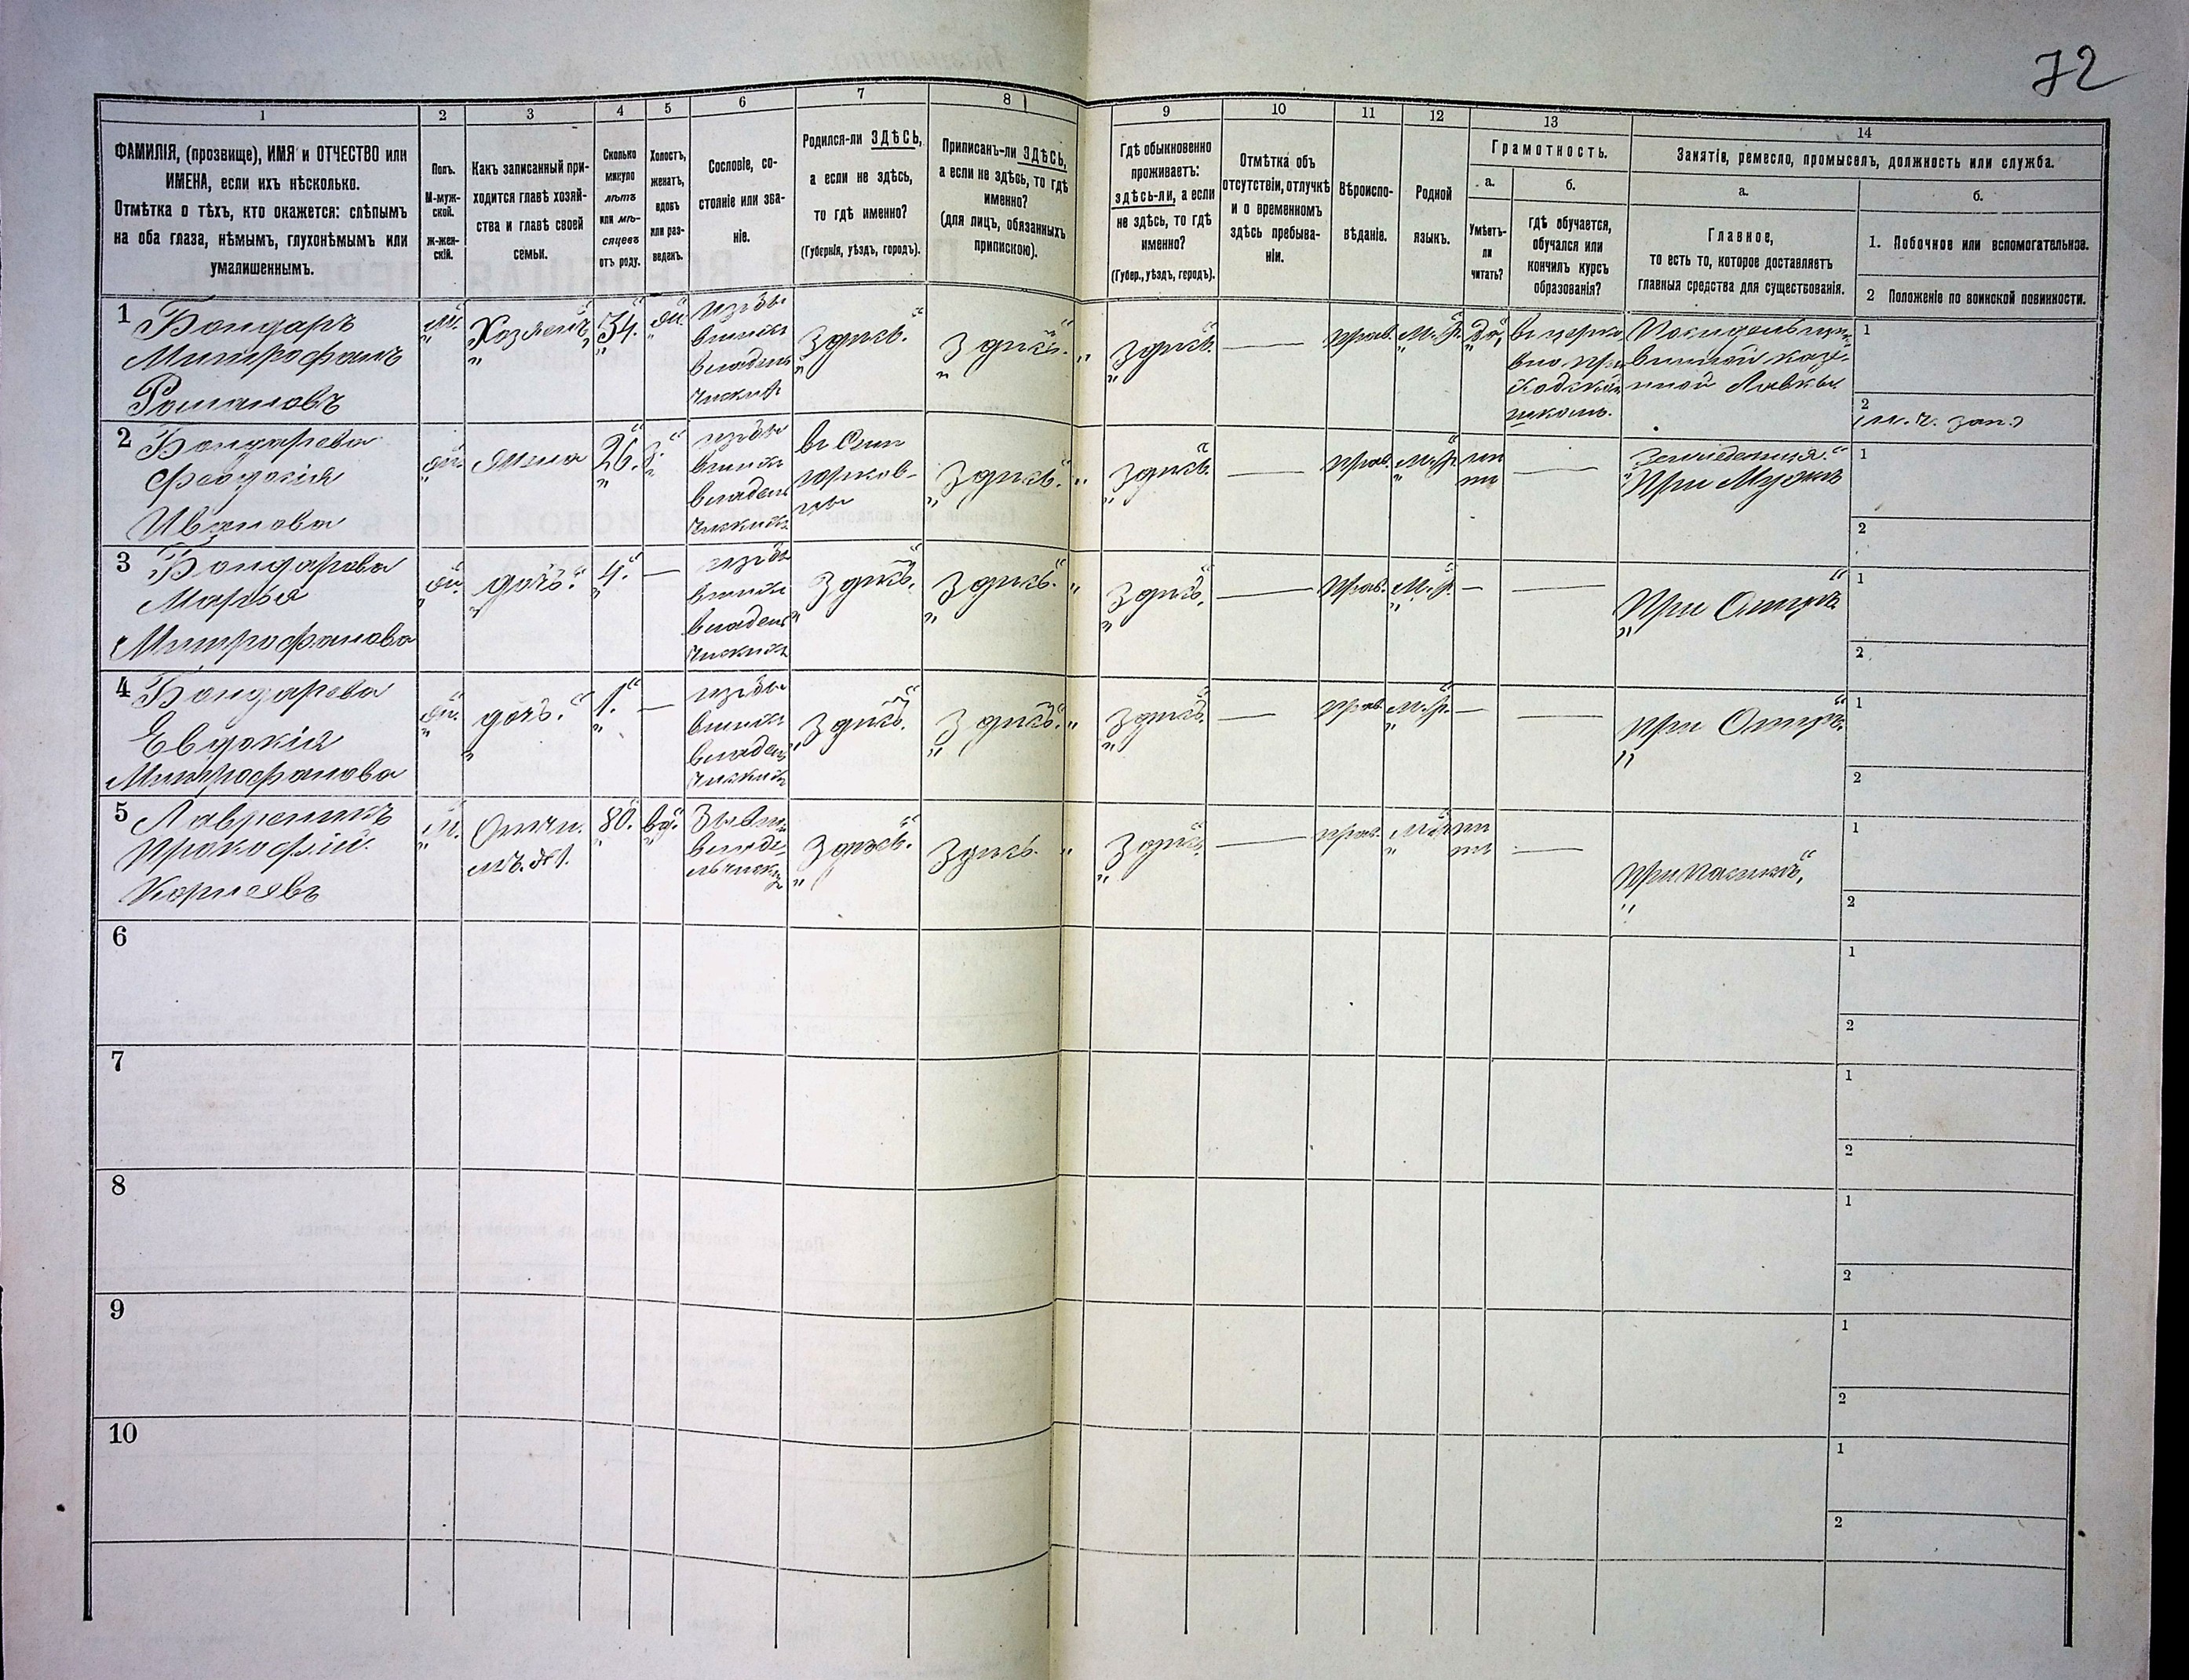 72
1 2 3 4 5 6 7 8 9 10 11 12 13 14
ФАМИЛІЯ, (прозвище), ИМЯ и ОТЧЕСТВО или
ИМЕНА, если ихъ нѣсколько.
Отмѣтка о тѣхъ, кто окажется: слѣпымъ
на оба глаза, нѣмымъ, глухонѣмымъ или
умалишеннымъ.
Полъ.
М-муж-
ской.
ж-жен-
скій.
Какъ записанный при-
ходится главѣ хозяй-
ства и главѣ своей
семьи.
Сколько
минуло
лѣтъ
или мѣ-
сяцевъ
отъ роду.
Холостъ,
женатъ,
вдовъ
или раз-
веденъ.
Сословіе, со-
стояніе или зва-
ніе.
Родился-ли ЗДѢСЬ,
а если не здѣсь,
то гдѣ именно?
(Губернія, уѣздъ, городъ).
Приписанъ-ли ЗДѢСЬ,
а если не здѣсь, то гдѣ
именно?
(для лицъ, обязанныхъ
припискою).
Гдѣ обыкновенно
проживаетъ:
здѣсь-ли, а если
не здѣсь, то гдѣ
именно?
(Губер., уѣздъ, городъ).
Отмѣтка объ
отсутствіи, отлучкѣ
и о временномъ
здѣсь пребыва-
ніи.
Вѣроиспо-
вѣданіе.
Родной
языкъ.
Грамотность.
а.
Умѣетъ-
ли
читать?
б.
гдѣ обучается,
обучался или
кончилъ курсъ
образованія?
Занятіе, ремесло, промыселъ, должность или служба.
а.
Главное,
то есть то, которое доставляетъ
главныя средства для существованія.
б.
1. Побочное или вспомогательное.
2 Положеніе по воинской повинности.
1 Бондарь
Митрофанъ
Романовъ
м.
Хозяинъ
34.
ж.
изъ бы
вшихъ
владель
ческихъ
Здѣсь.
Здѣсь.
Здѣсь.
—
прав.
м.р.
да,
въ церко
вно при
ходской
школѣ.
винной казе-
нной Лавки
1
2
2 Бондарева
Феодосія
Иванова
ж.
Жена
26.
з.
изъ бы
вшихъ
владель
ческихъ
Здѣсь.
Здѣсь.
—
прав.
м.р.
не
тъ
—
При Мужѣ
1
2
3 Бондарева
Марья
Митрофанова
ж.
дочь.
4.
—
изъ бы
вшихъ
владель
ческихъ
Здѣсь.
Здѣсь.
Здѣсь.
—
прав.
м.р.
—
—
При Отцѣ
1
2
4 Бондарева
Евдокія
Митрофанова
ж.
дочь.
1.
—
изъ бы
вшихъ
владель
ческихъ
Здѣсь.
Здѣсь.
Здѣсь.
—
прав.
м.р.
—
—
при Отцѣ.
1
2
5 Лавреникъ
Прокофій.
Корнеевъ
м.
Отчи
мъ. №1.
80.
вд.
Здѣсь.
Здѣсь.
Здѣсь.
—
прав.
м.р.
не
тъ
—
1
2
6
1
2
7
1
2
8
1
2
9
1
2
10
1
2